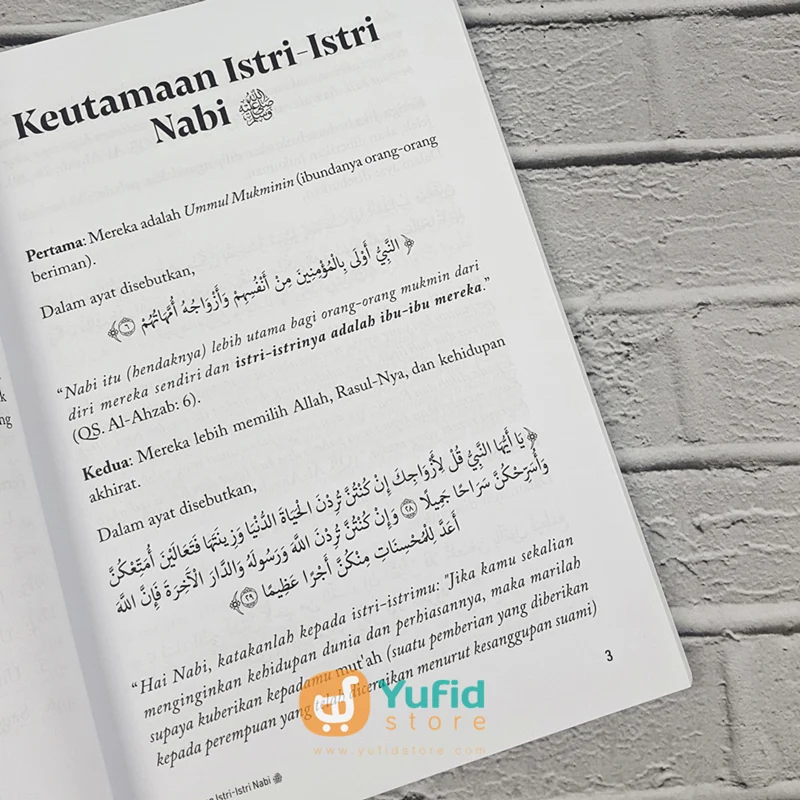 Keutamaan Istri-Istri
Nabi ﷺ
Pertama: Mereka adalah Ummul Mukminin (ibundanya orang-orang
beriman).
Dalam ayat disebutkan,
﴿ النَّبِيُّ أَوْلَى بِالْمُؤْمِنِينَ مِنْ أَنْفُسِهِمْ وَأَزْوَاجُهُ أُمَّهَاتُهُمْ ۝٦ ﴾
“Nabi itu (hendaknya) lebih utama bagi orang-orang mukmin dari
diri mereka sendiri dan istri-istrinya adalah ibu-ibu mereka.”
(QS. Al-Ahzab: 6).
Kedua: Mereka lebih memilih Allah, Rasul-Nya, dan kehidupan
akhirat.
Dalam ayat disebutkan,
﴿ يَا أَيُّهَا النَّبِيُّ قُلْ لِأَزْوَاجِكَ إِنْ كُنْتُنَّ تُرِدْنَ الْحَيَاةَ الدُّنْيَا وَزِينَتَهَا فَتَعَالَيْنَ أُمَتِّعْكُنَّ
وَأُسَرِّحْكُنَّ سَرَاحًا جَمِيلًا ۝٢٨ وَإِنْ كُنْتُنَّ تُرِدْنَ اللَّهَ وَرَسُولَهُ وَالدَّارَ الْآخِرَةَ فَإِنَّ اللَّهَ
أَعَدَّ لِلْمُحْسِنَاتِ مِنْكُنَّ أَجْرًا عَظِيمًا ۝٢٩ ﴾
“Hai Nabi, katakanlah kepada istri-istrimu: "Jika kamu sekalian
menginginkan kehidupan dunia dan perhiasannya, maka marilah
supaya kuberikan kepadamu mut'ah (suatu pemberian yang diberikan
kepada perempuan yang telah diceraikan menurut kesanggupan suami)
3
Istri-Istri Nabi ﷺ
Yufid
store
www.yufidstore.com